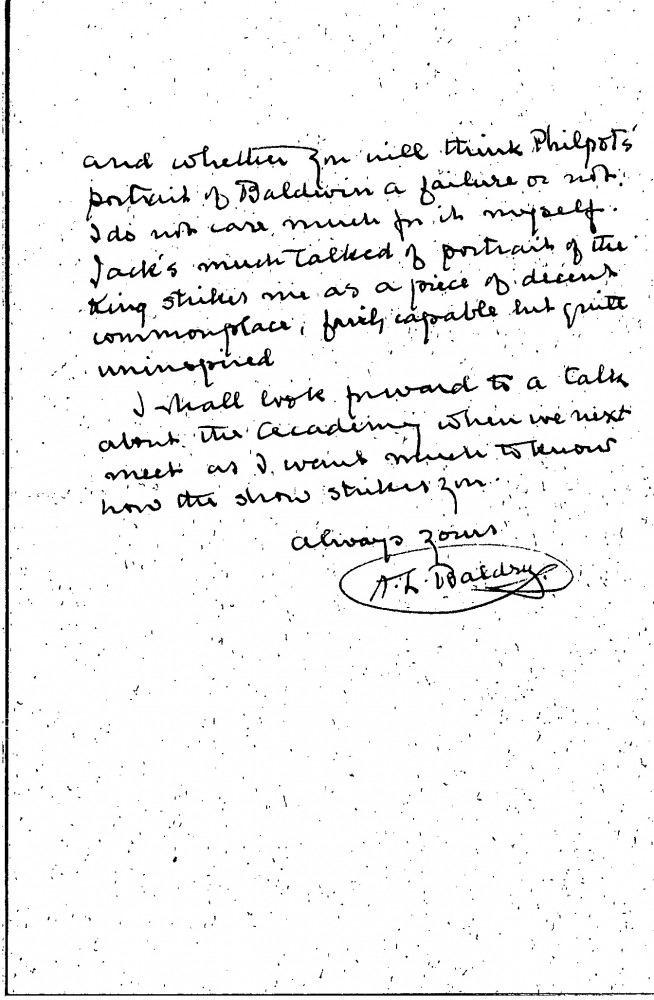 and whether you will think Philpots'
portrait of Baldwin a failure or not.
I do not care much for it myself.
Jack's much talked of portrait of the
King strikes me as a piece of decent
commonplace, fairly capable but quite
uninspired
I shall look forward to a talk
about the Academy when we next
meet as I want much to know
how the show strikes you.
Always yours
A. L. Baldry.